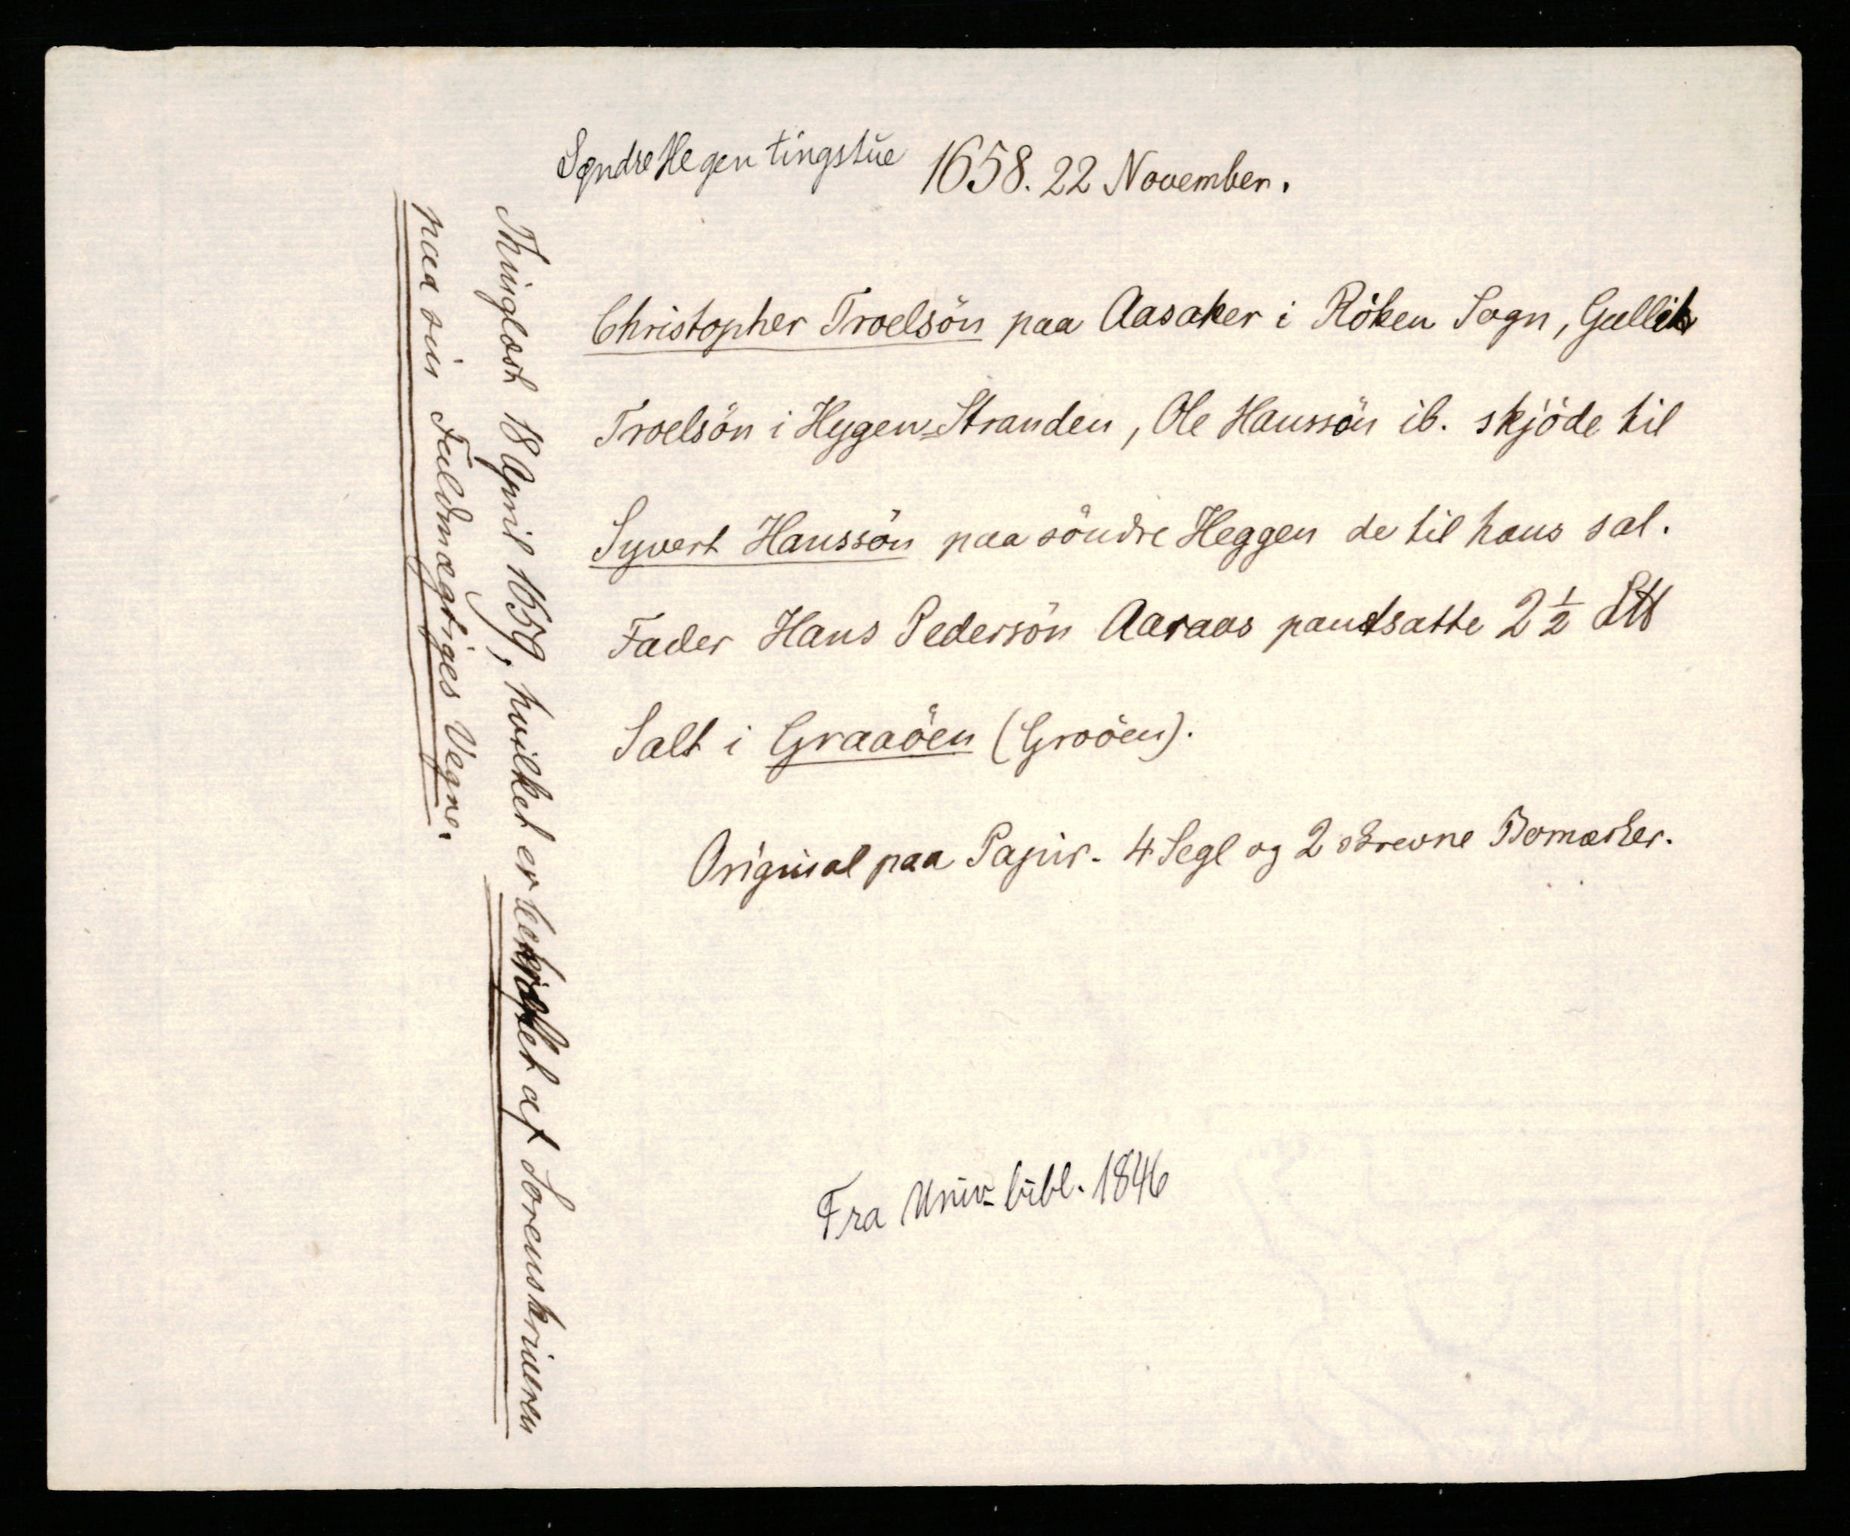 Søndre Hegen tingstue 1658. 22 November.
Christopher Troelsön paa Aasaker i Röken Sogn, Gullik
Troelsön i Hygen-Stranden, Ole Hanssön ib. skjöde til
Syvert Hanssön paa söndre Heggen de til hans sal.
Fader Hans Pedersön Aaraas pantsatte 2 1/2 L℔
Salt i Graaöen (Groöen).
Original paa Papir. 4 Segl og 2 skrevne Bomærker.
Fra Univ-bibl. 1846
Thinglæst 18 April 1659, hvilket er bekræftet af Sorenskriveren
paa sin Fuldmægtiges Vegne.